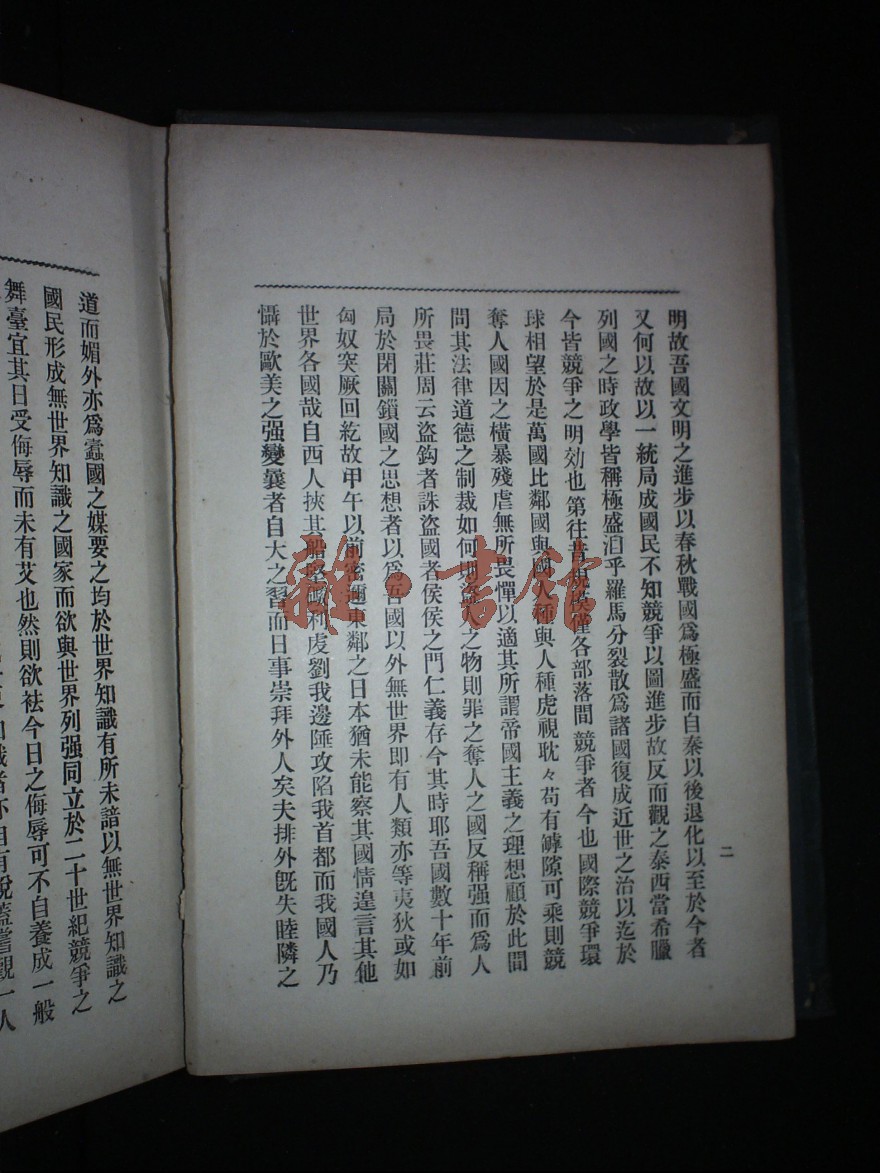 二
明故吾國文明之進步以春秋戰國爲極盛而自秦以後退化以至於今者
又何以故以一統局成國民不知競爭以圖進步故反而觀之泰西當希臘
列國之時政學皆稱極盛洎乎羅馬分裂散爲諸國復成近世之治以迄於
今皆競爭之明効也第往昔規模僅各部落間競爭者今也國際競爭環
球相望於是萬國比鄰國與國人種與人種虎視耽々苟有罅隙可乘則競
奪人國因之橫暴殘虐無所畏憚以適其所謂帝國主義之理想顧於此間
問其法律道德之制裁如何則盜人之物則罪之奪人之國反稱强而爲人
所畏莊周云盜鈎者誅盜國者侯侯之門仁義存今其時耶吾國數十年前
局於閉關鎖國之思想者以爲吾國以外無世界即有人類亦等夷狄或如
匈奴突厥回紇故甲午以前密邇東鄰之日本猶未能察其國情遑言其他
世界各國哉自西人挾其船堅礮利虔劉我邊陲攻陷我首都而我國人乃
懾於歐美之强變曩者自大之習而日事崇拜外人矣夫排外旣失睦隣之
道而媚外亦爲蠹國之媒要之均於世界知識有所未諳以無世界知識之
國民形成無世界知識之國家而欲與世界列强同立於二十世紀競爭之
舞臺宜其日受侮辱而未有艾也然則欲袪今日之侮辱可不自養成一般
雜·書館